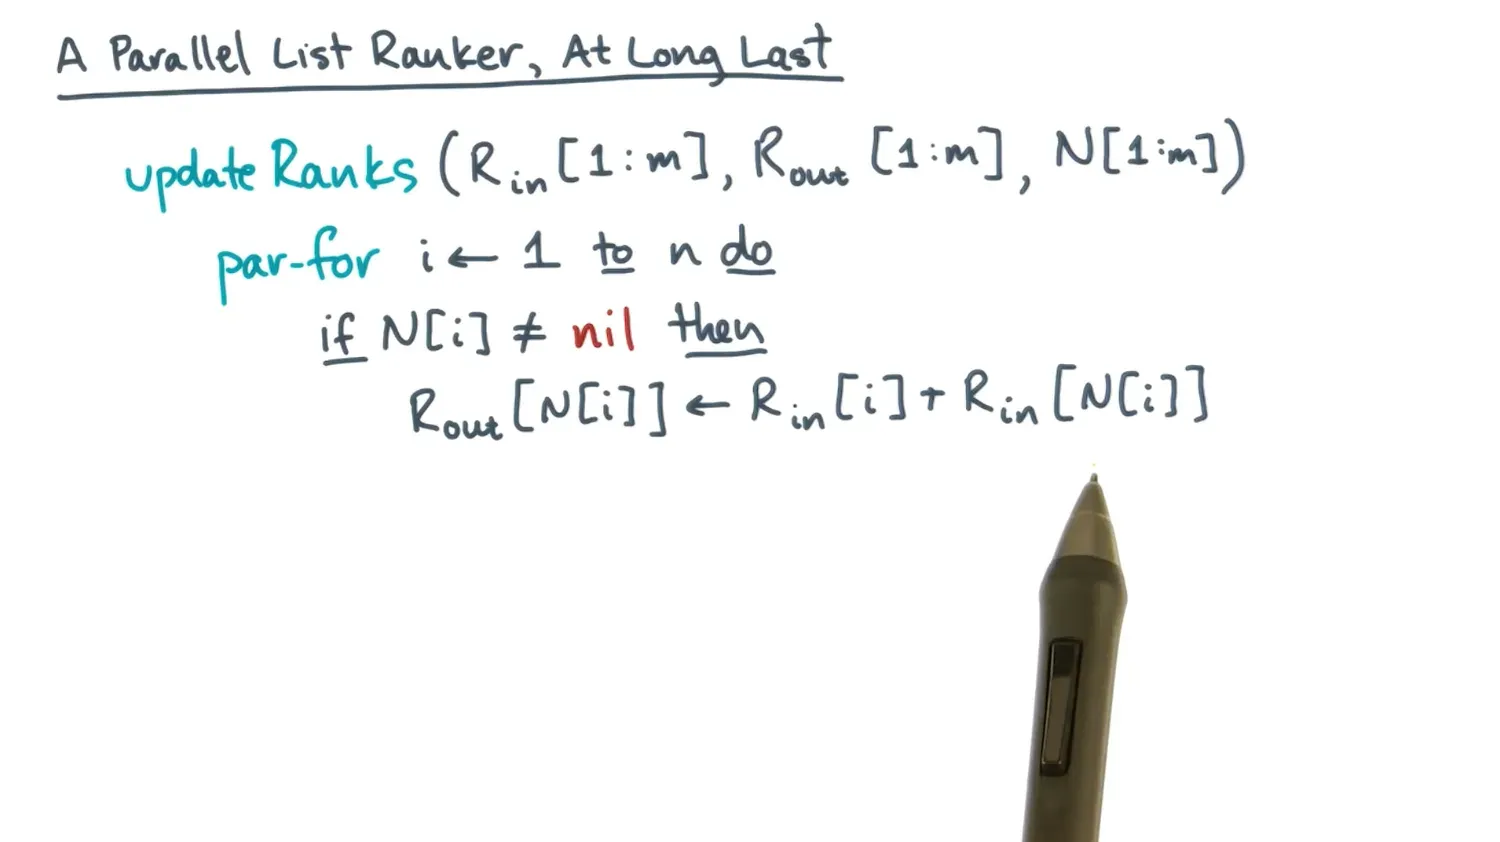 A Parallel List Ranker, At Long Last
updateRanks (R_in [1:m], R_out [1:m], N[1:m])
par-for i ← 1 to n do
if N[i] ≠ nil then
R_out [N[i]] ← R_in [i] + R_in [N[i]]